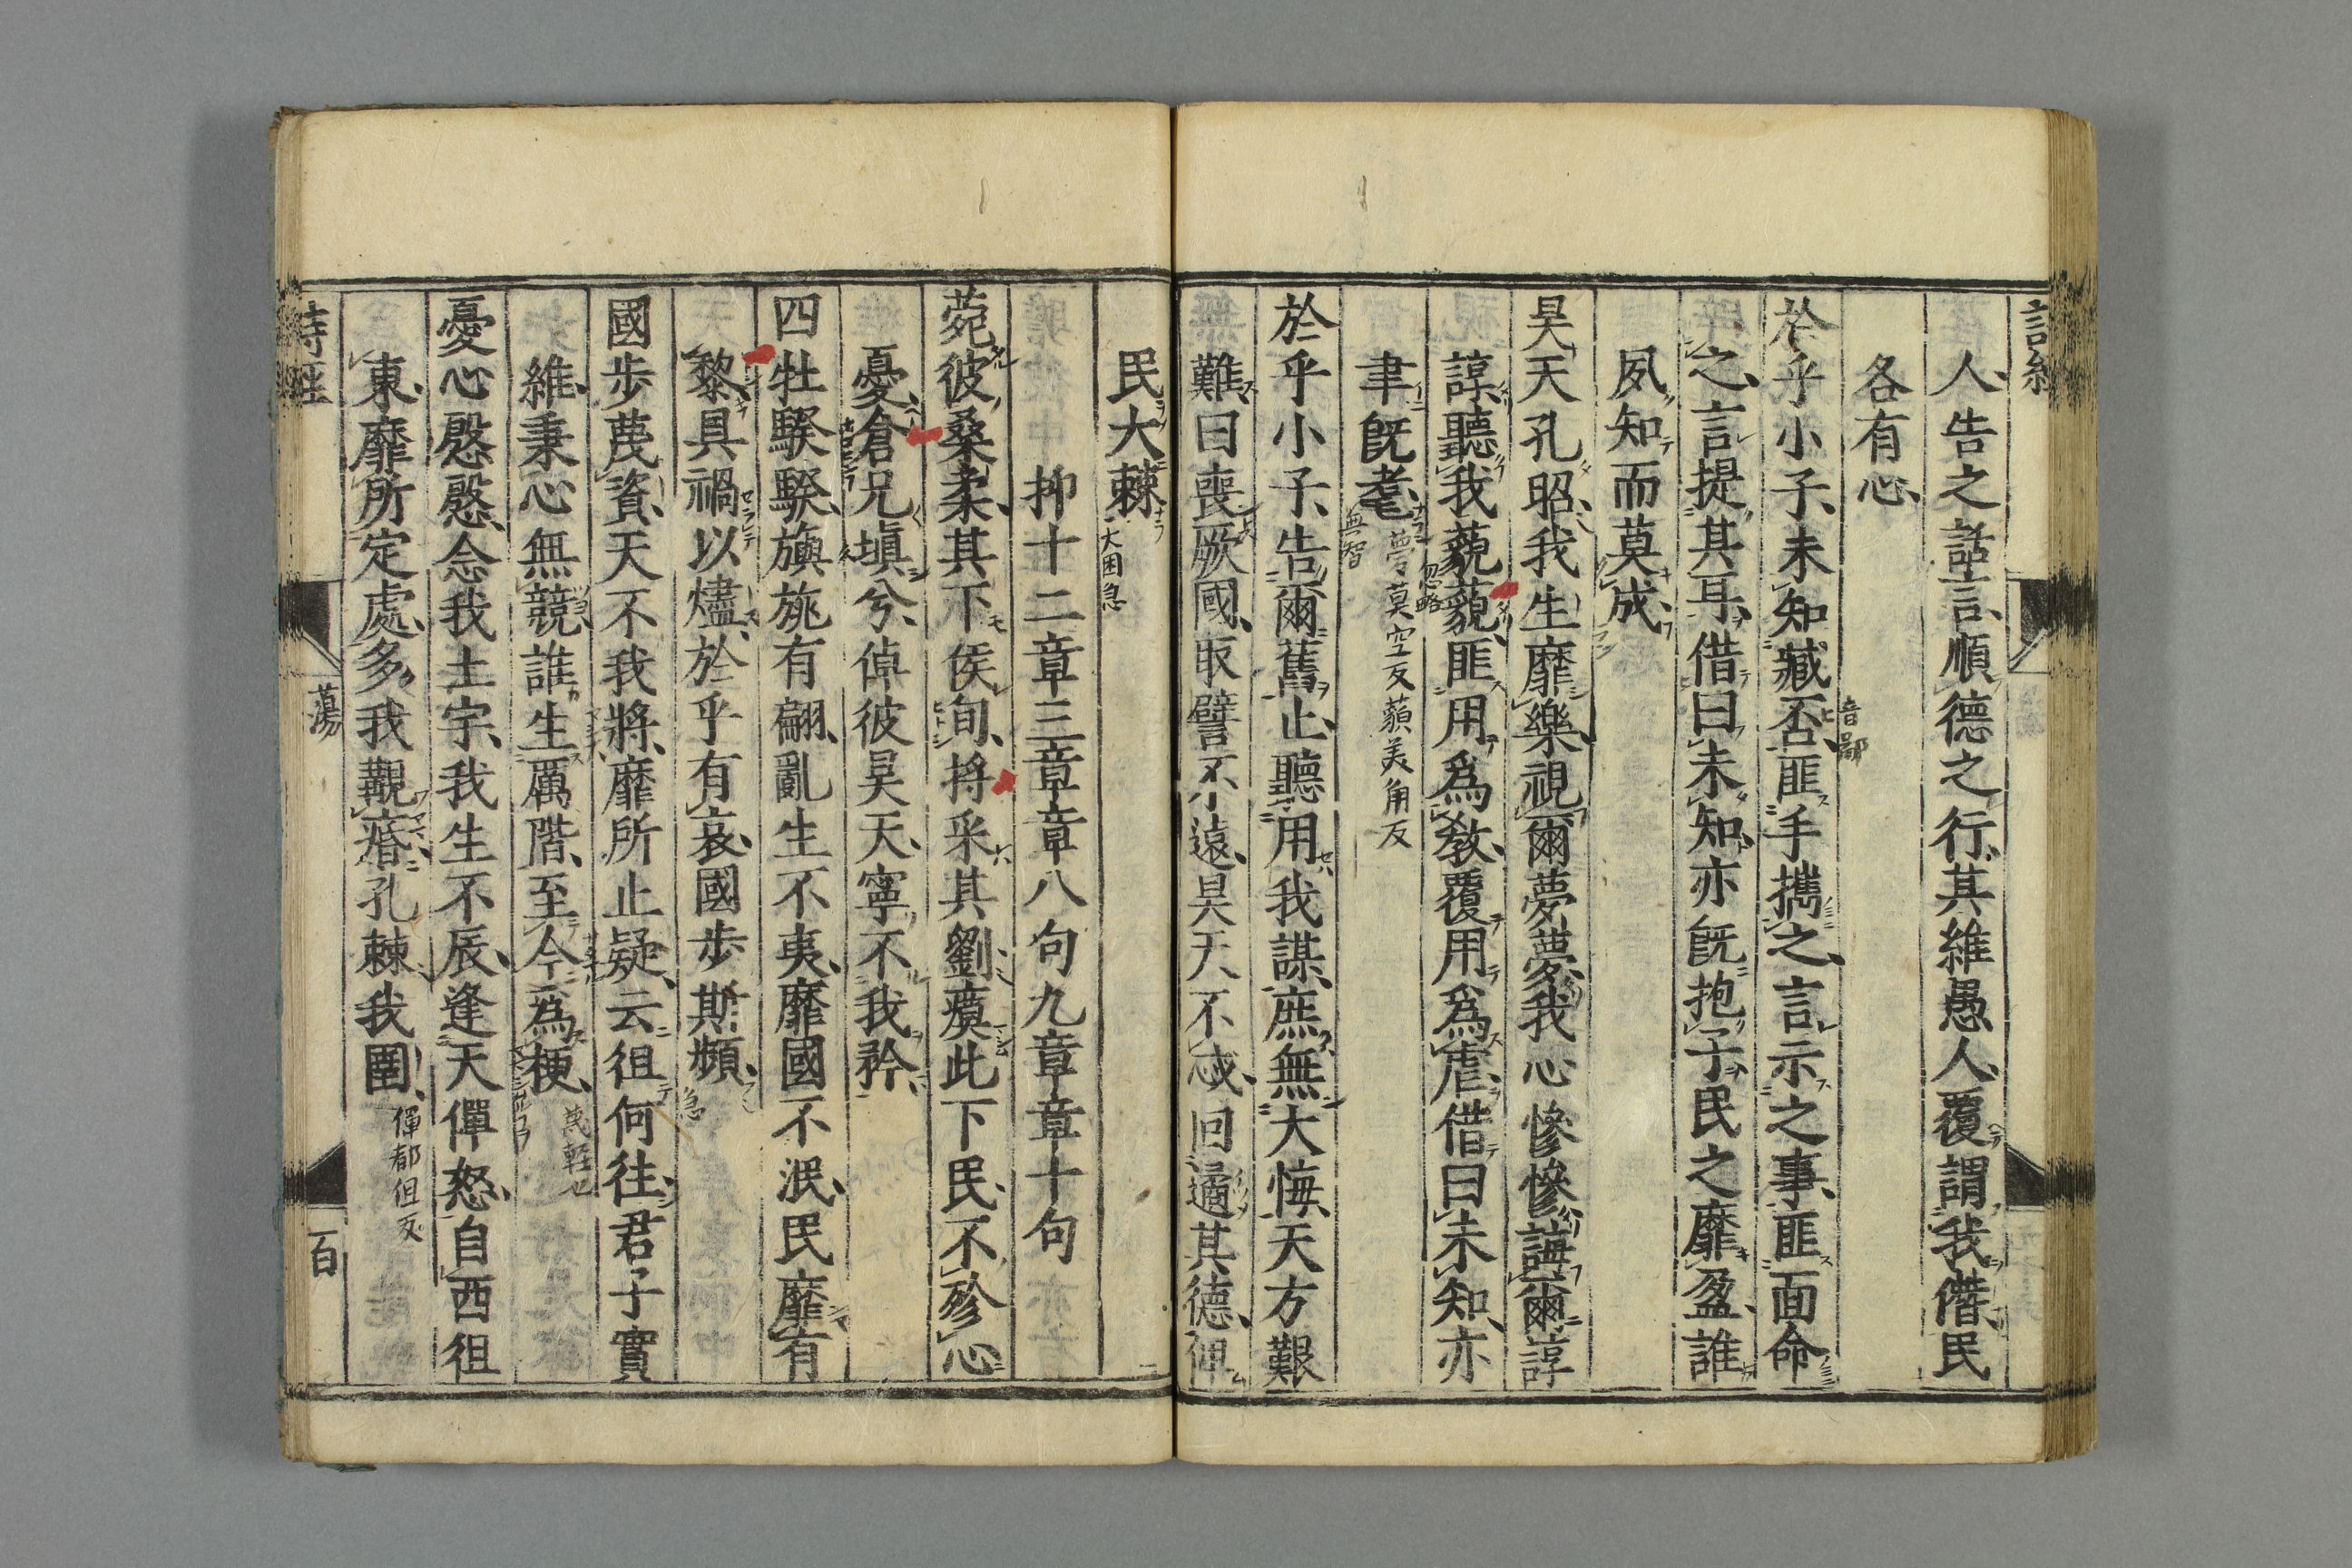 人告之話言順德之行其維愚人覆謂我僭民
各有心
於乎小子未知臧否匪手攜之言示之事匪面命
音鄙
之言提其耳借曰未知亦旣抱子民之靡盈誰
夙知而莫成
昊天孔昭我生靡樂視爾夢夢我心慘慘誨爾諄
諄聽我藐藐匪用爲教覆用爲虐借曰未知亦
忽略
聿旣耄
夢莫空反藐美角反
無智
於乎小子告爾舊止聽用我謀庶無大悔天方艱
難曰喪厥國取譬不遠昊天不忒回遹其德俾
民大棘
大困急
抑十二章三章章八句九章章十句
菀彼桑柔其下侯旬捋采其劉瘼此下民不殄心
憂倉兄塡兮倬彼昊天寧不我矜
四牡騤騤旟旐有翩亂生不夷靡國不泯民靡有
黎具禍以燼於乎有哀國步斯頻
急
國步蔑資天不我將靡所止疑云徂何往君子實
維秉心無競誰生厲階至今爲梗
憂心慇慇念我土宇我生不辰逢天僤怒自西徂
東靡所定處多我覯痻孔棘我圉
僤都但反
詩經
蕩
百